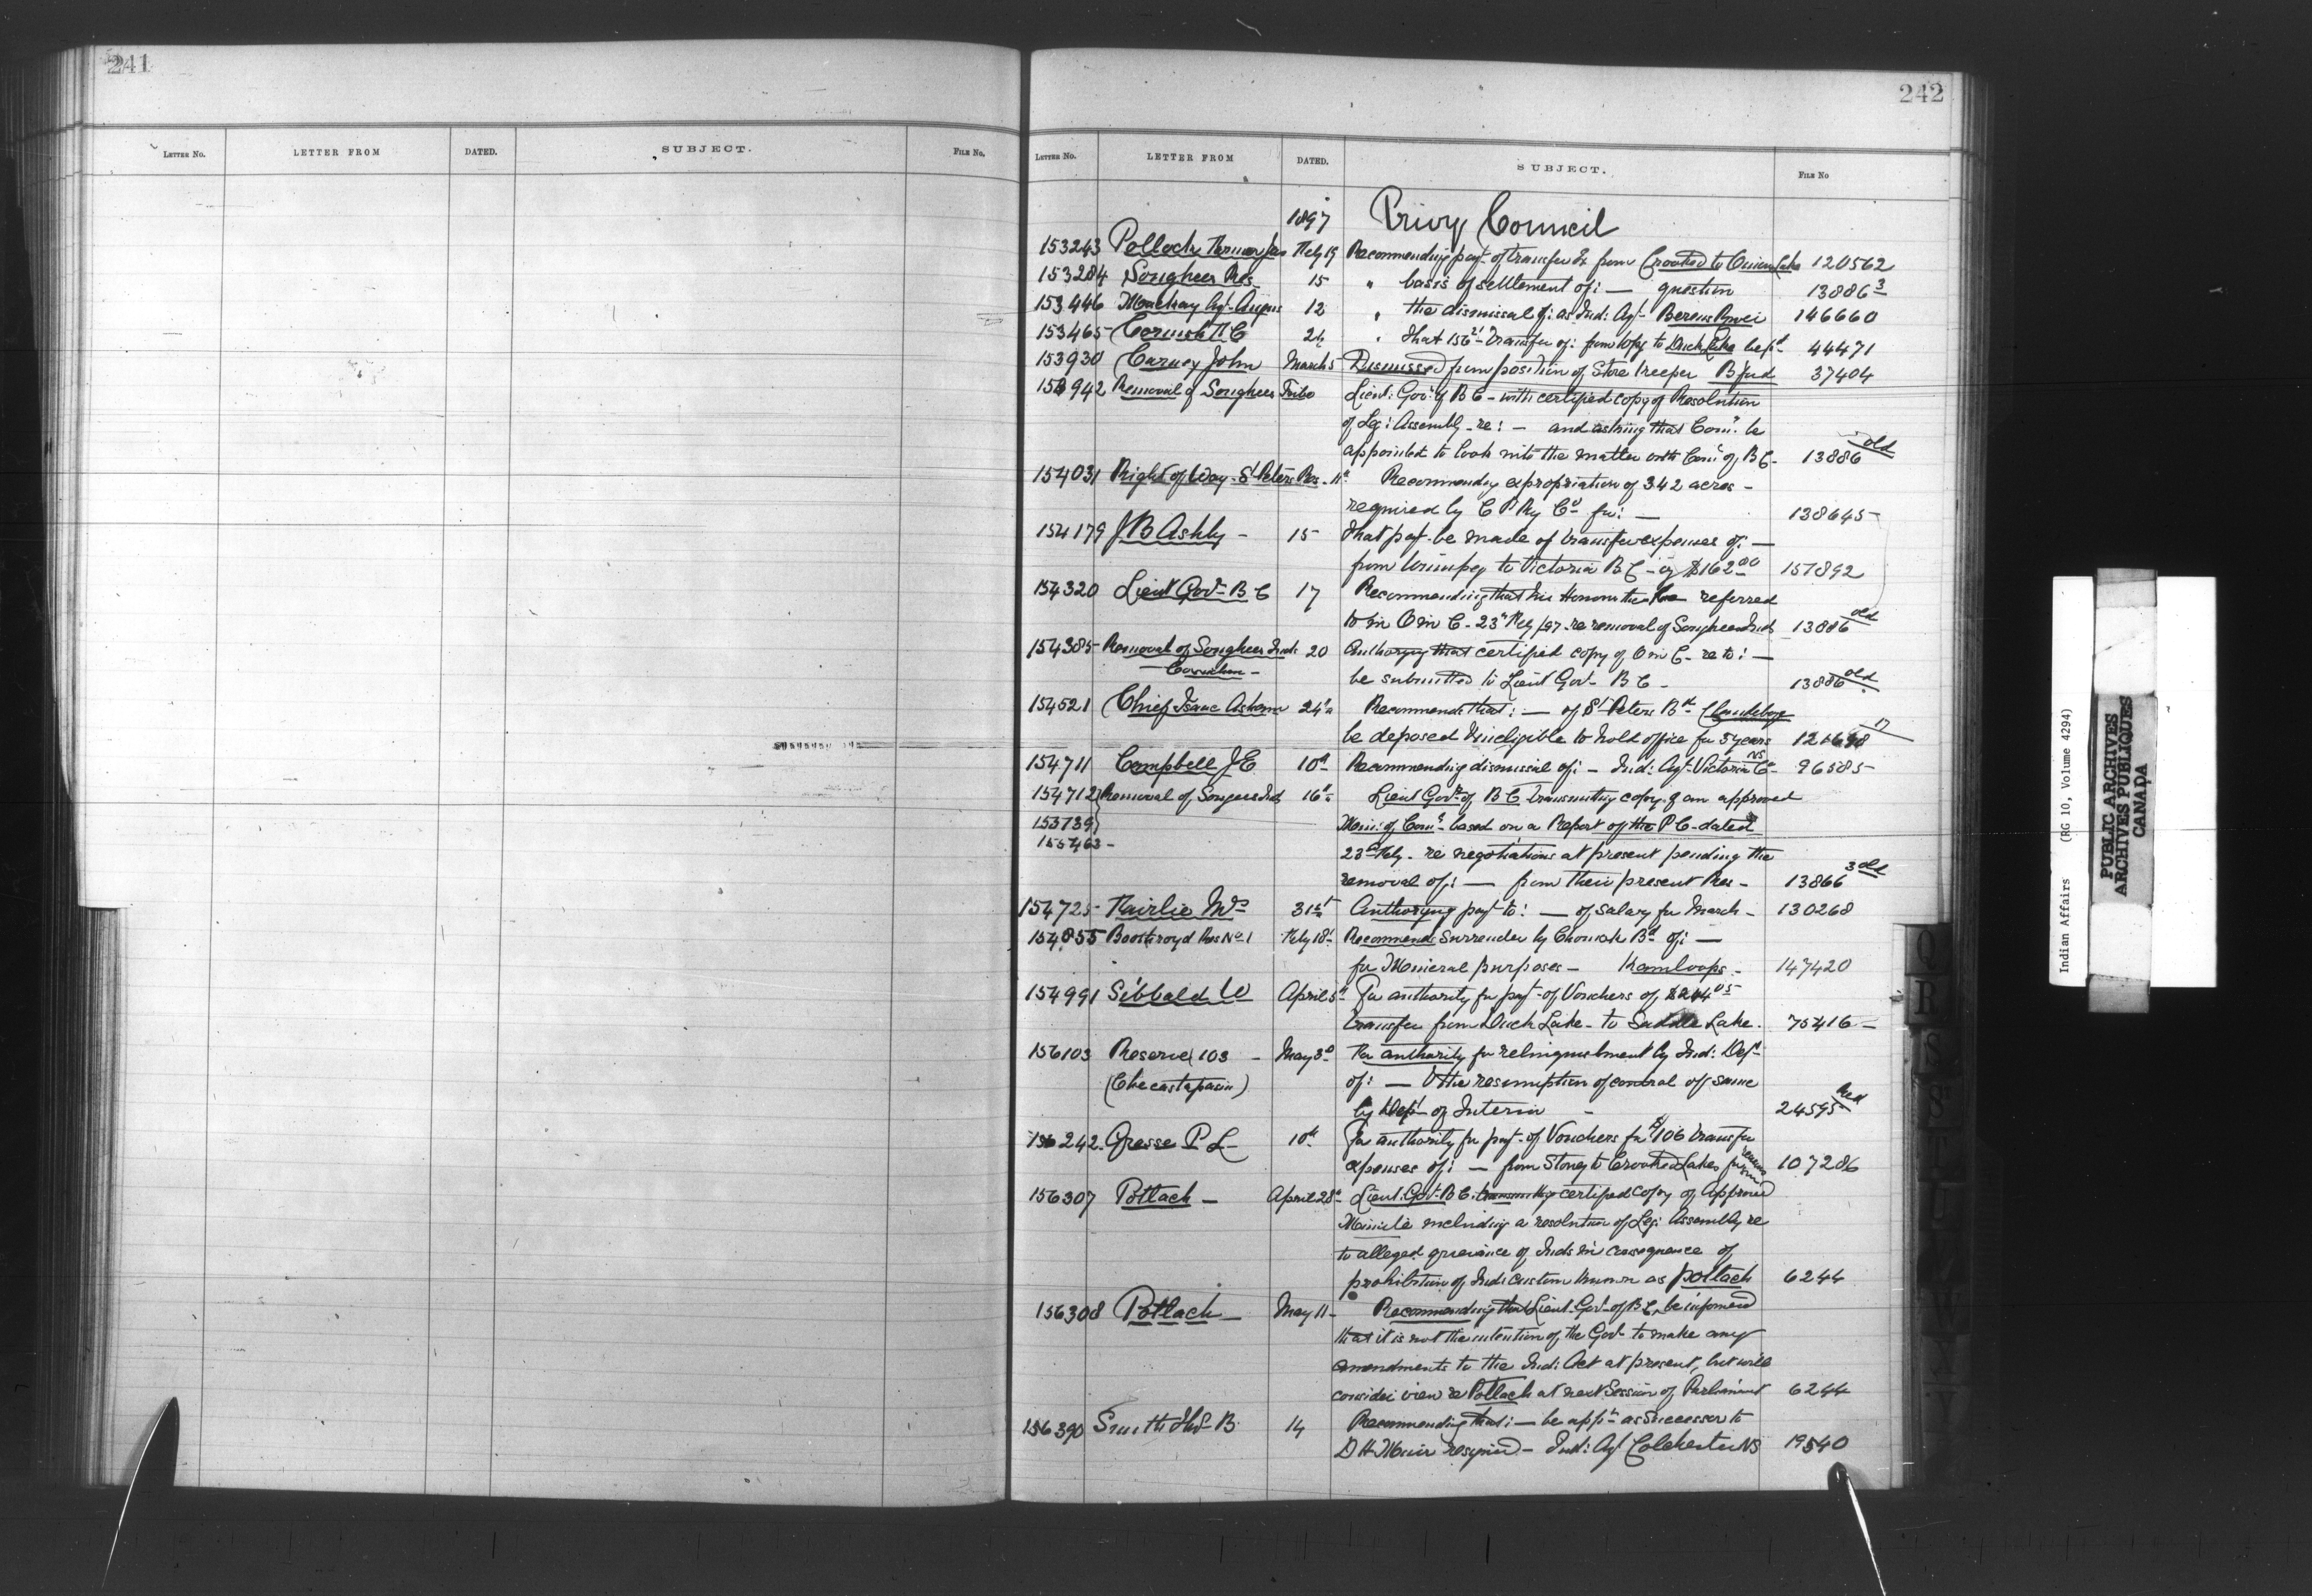 241
LETTER No. LETTER FROM DATED. SUBJECT. FILE No.
242
LETTER No. LETTER FROM DATED. SUBJECT. FILE No
1897 Privy Council
153243 Pollock Feby 19 Recommending payt of transfer Ex from Crooked to Onion Lake 120562
153284 Songhees Res. 15 " basis of settlement of: — question 13886 3
153446 Mackay Agt. Angus 12 " the dismissal of: as Ind: Agt. Berens River 146660
153465 Cornish 24 " that transfer of: from to Duck Lake be pd 44471
153930 Carney John March 5 Dismissed from position of Store Keeper B'ford 37404
153942 Removal of Songhees Tribe Lieut: Govr of B C - with certified copy of Resolution
of Leg: Assembly - re: — and asking that Comn. be
appointed to look into the matter with Comr of B C - 13886 old
154031 Right of Way - St Peters Res. 11th Recommending expropriation of 342 acres -
required by C P Ry Co for: — 138645
154179 J B Ashby - 15 That payt be made of transfer expenses of: —
from Winnipeg to Victoria B C - viz $162.00 157892
154320 Lieut Govr B C 17 Recommending that his Honour the be referred
to in O in C - 23rd Feby /97 - re removal of Songhees Inds 13886 old
154385 Removal of Songhees Inds 20 certified copy of O in C - re to: —
be submitted to Lieut Govr B C - 13886 old
154521 Chief Isaac 24th Recommends that: — of St Peters Bd
be deposed & ineligible to hold office for 3 years
154711 Campbell J E 10th Recommending dismissal of: - Ind: Agt. Victoria Co NS 96585
154712 Removal of Songees Inds 16th Lieut Govr of B C transmitting copy of an approved
153739 Min: of Comn. based on a Report of the P C - dated
155463 - 23rd Feby - re negotiations at present pending the
removal of: — from their present Res - 13866 3 old
154725 Fairlie Mrs 31st Authorizing payt to: — of salary for March - 130268
154855 Boothroyd Res No 1 Feby 18th Recommends Surrender by Chomok Bd of: —
for Mineral purposes - Kamloops - 147420
154991 Sibbald W April 5th For authority for payt - of Vouchers of $244.05
transfer from Duck Lake - to Saddle Lake. 75416 —
156103 Reserve 103 - May 3rd For authority for relinquishment by Ind: Dept
(Checastapasin) of: — & the resumption of control of same
by Dept of Interior - 24595 Red
156242. Grasse P. L - 10th For authority for payt - of Vouchers for $106 transfer
expenses of: — from Stoney to Crooked Lakes 107286
156307 Potlach — April 28th Lieut. Govr B C. transmitting certified copy of Approved
Minute including a resolution of Leg: Assembly re
to alleged grievance of Inds in consequence of
prohibition of Inds custom known as potlach 6244
156308 Potlach — May 11 - Recommending that Lieut. Govr of B C be informed
that it is not the intention of the Govt to make any
amendments to the Ind: Act at present, but will
consider view re Potlach at next Session of Parliament 6244
156390 Smith Thos B. 14 Recommending that: — be apptd as Successor to
D H Muir resigned - Ind: Agt Colchester NS 19540
Indian Affairs (RG 10, Volume 4294)
PUBLIC ARCHIVES
ARCHIVES PUBLIQUES
CANADA